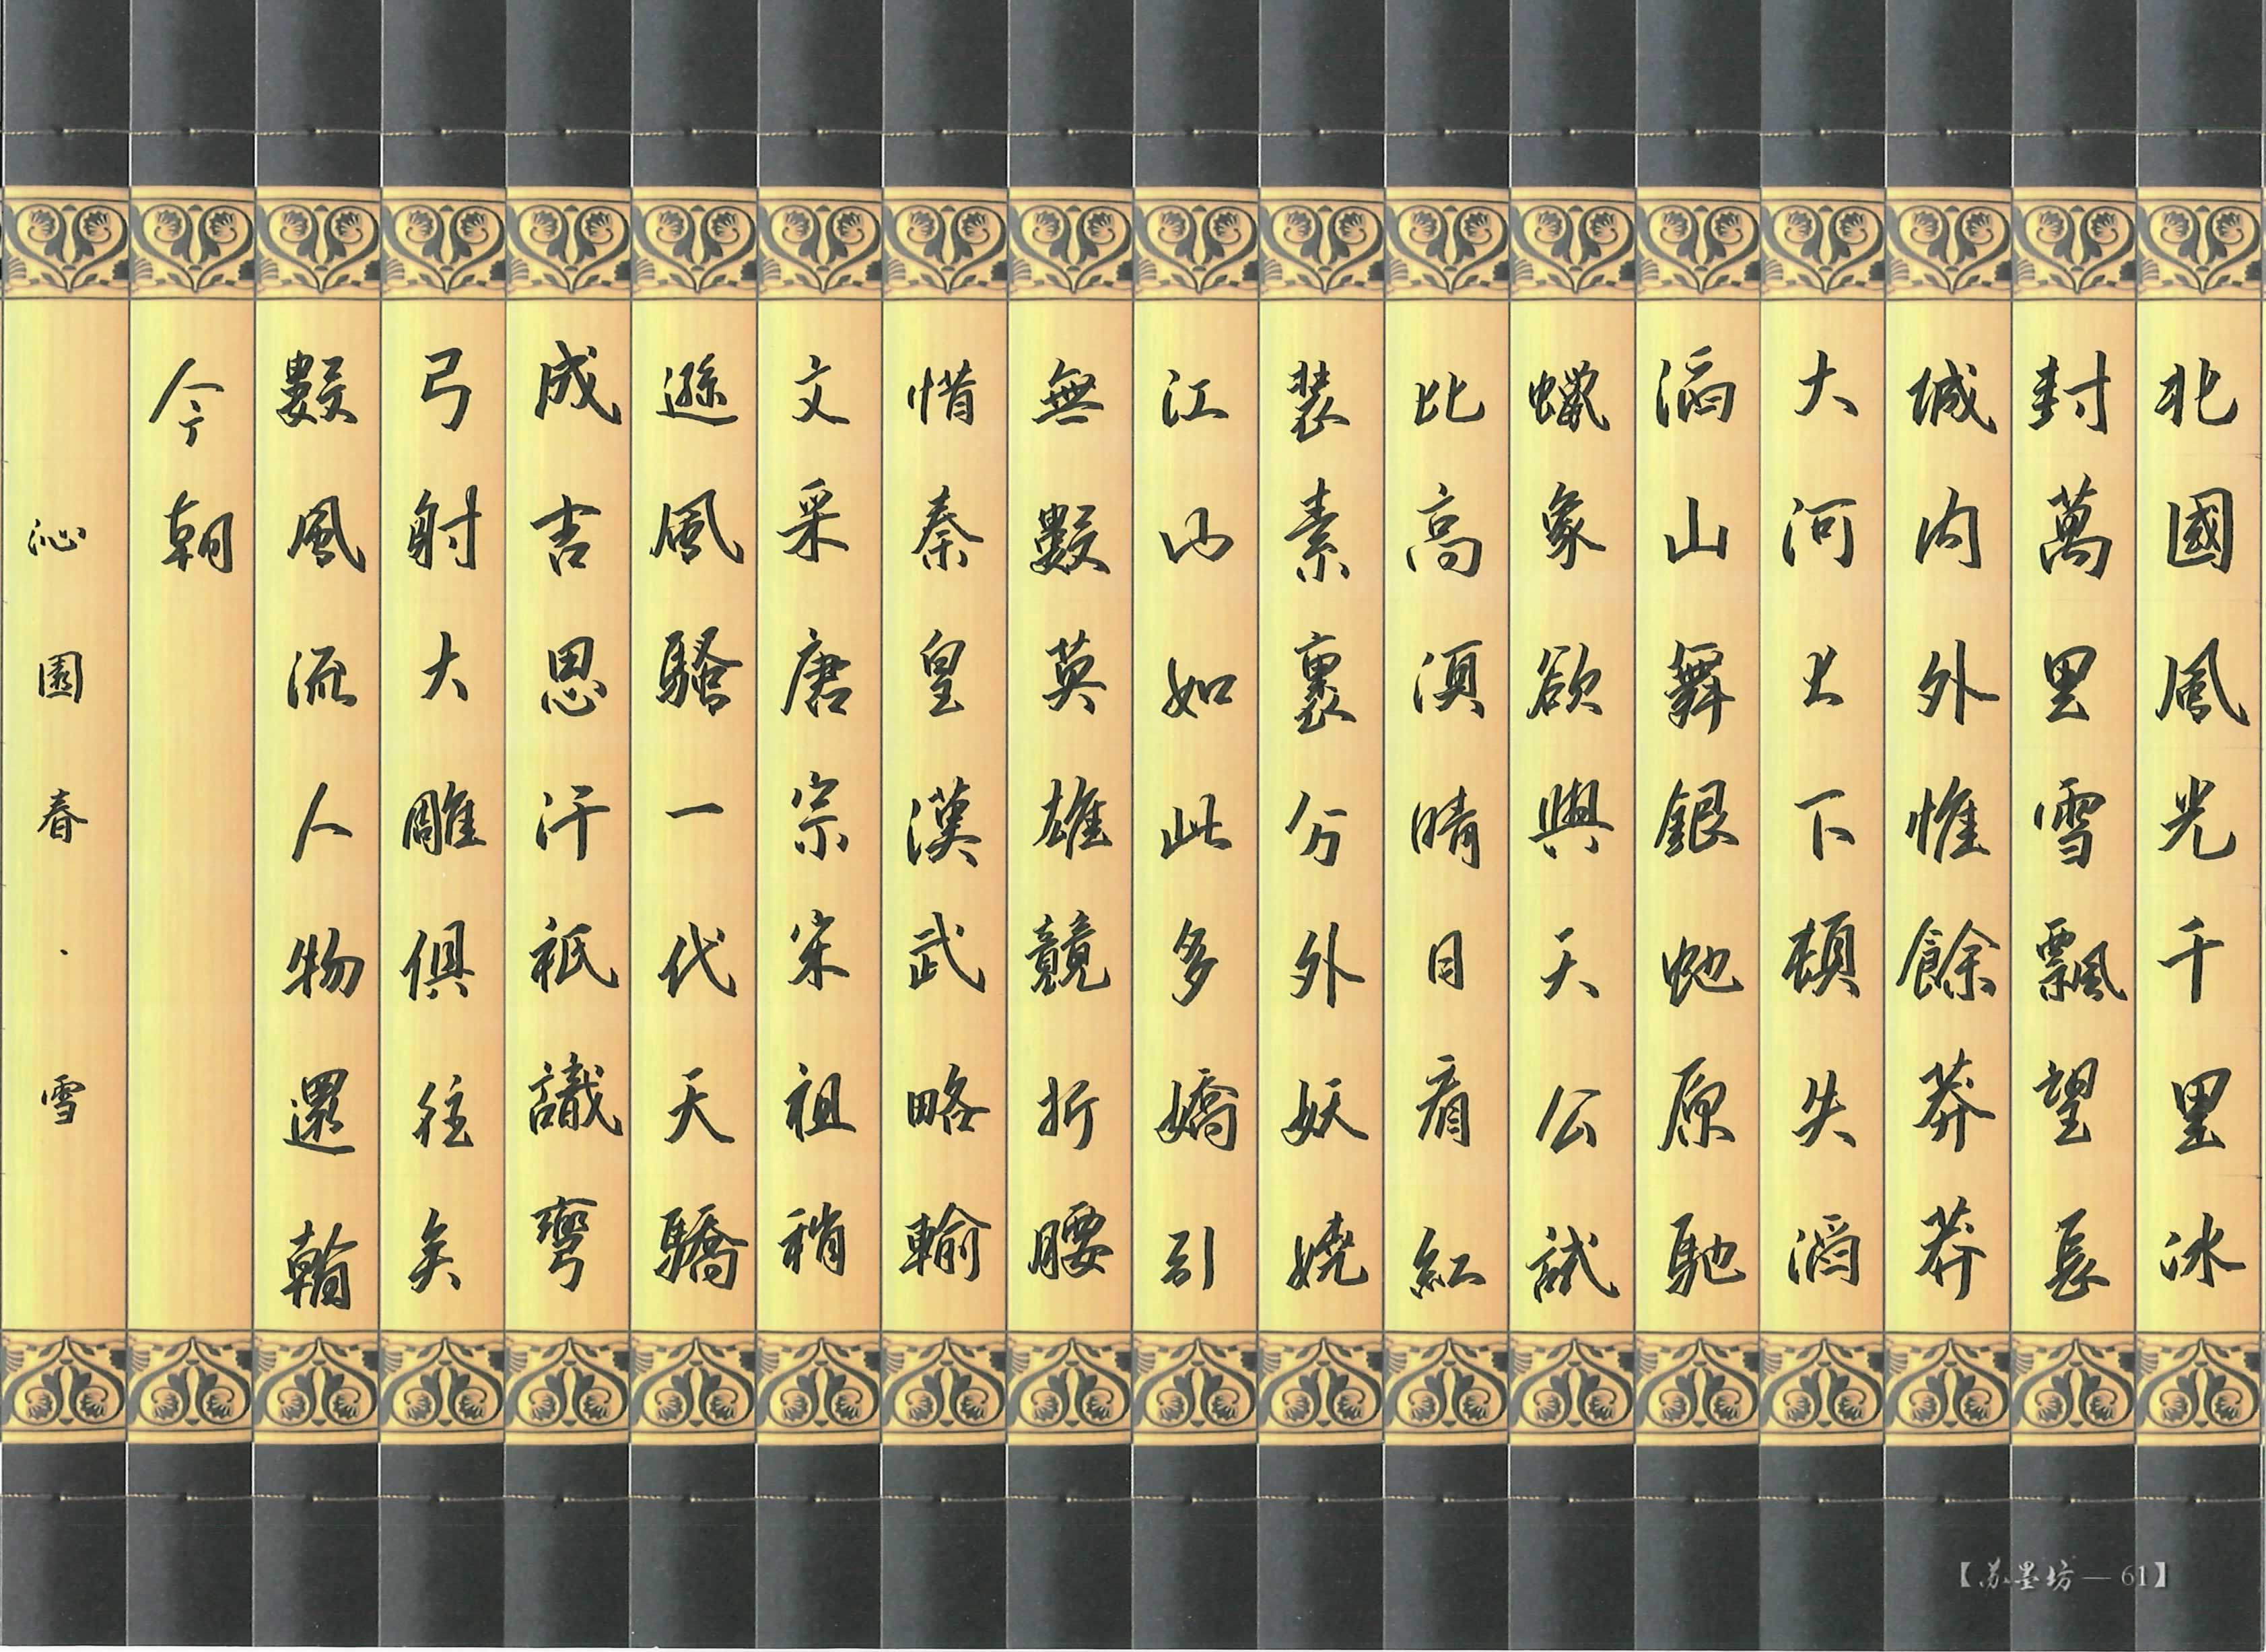 北國風光千里冰
封萬里雪飄望長
城内外惟餘莽莽
大河上下頓失滔
滔山舞銀虵原馳
蠟象欲與天公試
比高湏晴日看紅
裝素裹分外妖嬈
江山如此多嬌引
無數英雄競折腰
惜秦皇漢武略輸
文采唐宗宋祖稍
遜風騷一代天驕
成吉思汗祇識彎
弓射大雕俱往矣
數風流人物還看
今朝
沁園春·雪
【苏墨坊—61】